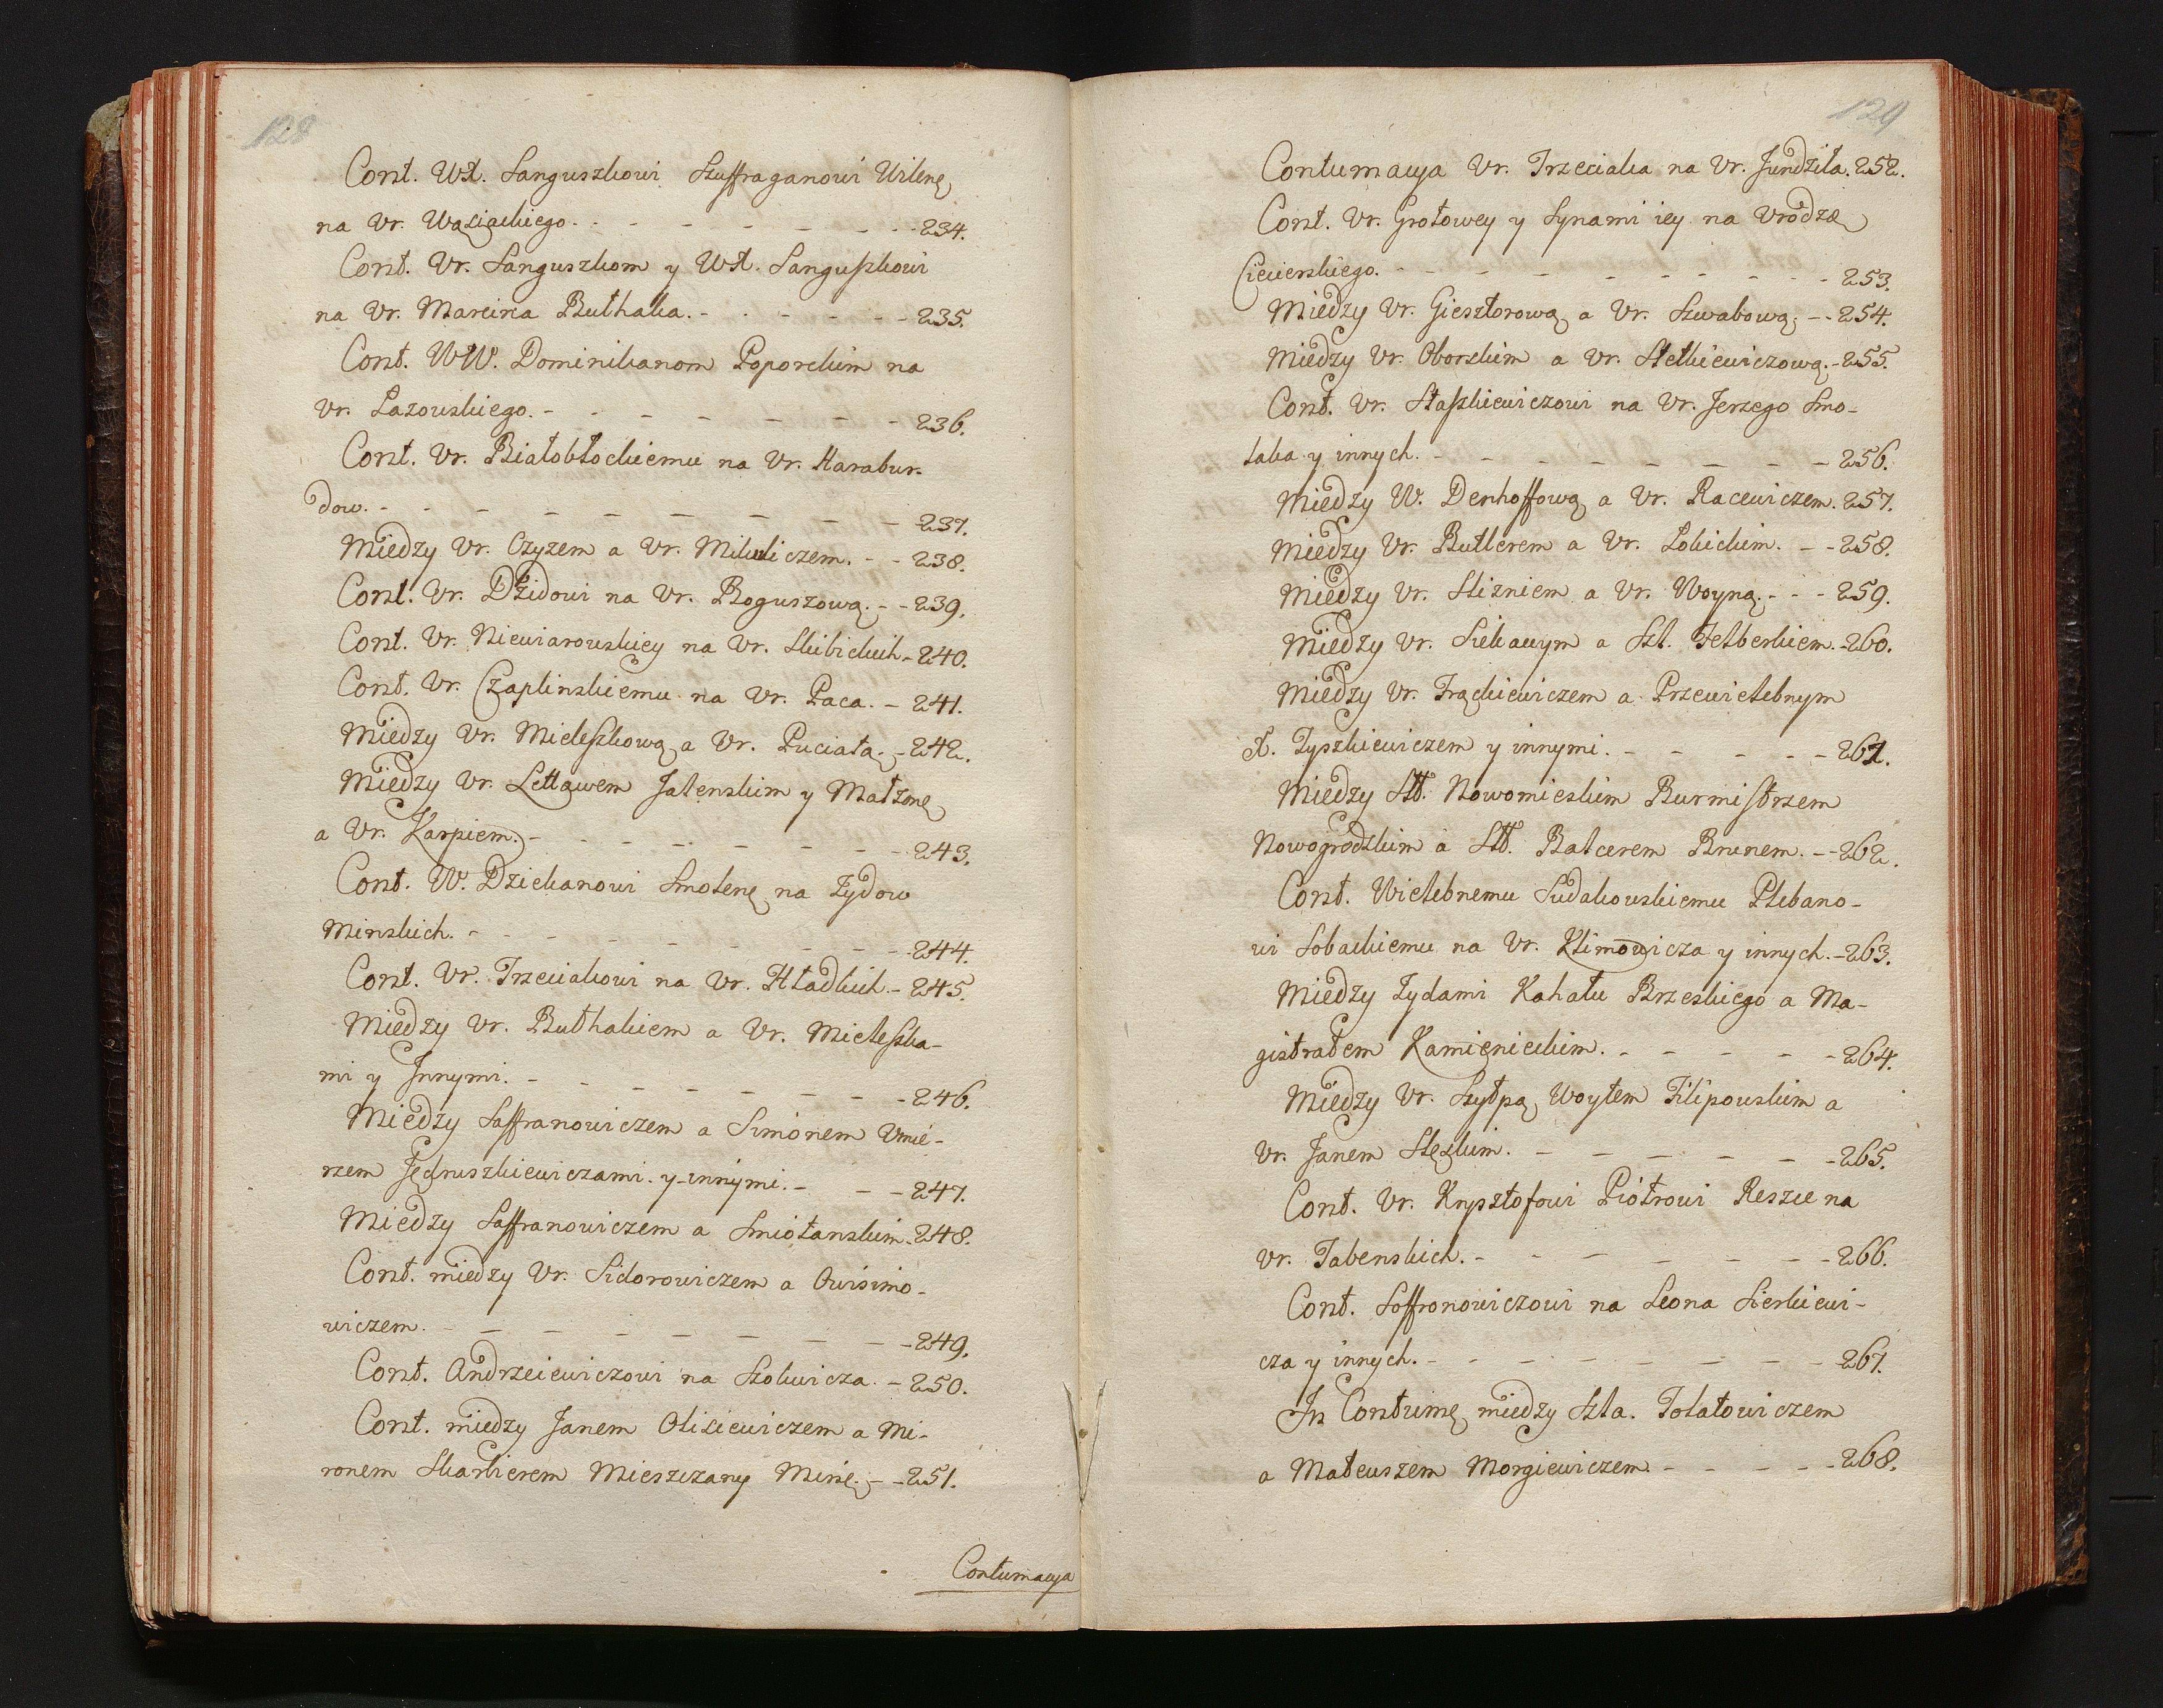 128
Cont. WX. Sanguszkowi Szuffraganowi Wilenę
na Vr. Wąsiackiego. - - - - - - 234.
Cont. Vr. Sanguszkom y WX. Sanguszkowi
na Vr. Marcina Buthaka. - - - - - 235.
Cont. WW. Dominikanom Poporckim na
Vr. Łazowskiego. - - - - - - - 236.
Cont. Vr. Białobłockiemu na Vr. Harabur-
dow. - - - - - - - - - - 237.
Między Vr. Czyzem a Vr. Mikuliczem. - - 238.
Cont. Vr. Dzidowi na Vr. Boguszową. - - 239.
Cont. Vr. Niewiarowskiey na Vr. Skibickich - 240.
Cont. Vr. Czaplinskiemu na Vr. Paca. - 241.
Między Vr. Mieleszkową a Vr. Puciatą. - 242.
Między Vr. Lettawem Jalenskim y Małzonę
a Vr. Karpiem. - - - - - - - 243.
Cont. W. Dziekanowi Smolenę na Zydow
Minskich. - - - - - - - - 244.
Cont. Vr. Trzeciakowi na Vr. Hładkich. - 245.
Między Vr. Buthakiem a Vr. Mieleszka-
mi y Innymi. - - - - - - - 246.
Między Saffranowiczem a Simonem Vmie-
rzem Jędruszkiewiczami y innymi. - - - 247.
Między Saffranowiczem a Smiotanskim. 248.
Cont. między Vr. Sidorowiczem a Owisimo-
wiczem. - - - - - - - - - 249.
Cont. Andrzeiewiczowi na Szolwicza. - 250.
Cont. między Janem Olisiewiczem a Mi-
ronem Skarbierem Mieszczany Minę. - - 251.
Contumacya
129
Contumacya Vr. Trzeciaka na Vr. Jundziła. 252.
Cont. Vr. Grotowey y Synami iey na Vrodzę
Ciecierskiego. - - - - - - - - 253.
Między Vr. Giesztorową a Vr. Szwabową. - - 254.
Między Vr. Oborskim a Vr. Stetkiewiczową. - 255.
Cont. Vr. Staszkiewiczowi na Vr. Jerzego Smo-
laka y innych. - - - - - - - - 256.
Między W. Denhoffową a Vr. Racewiczem. 257.
Między Vr. Butlerem a Vr. Łokickim. - - 258.
Między Vr. Slizniem a Vr. Woyną. - - - 259.
Między Vr. Sielawym a Szl. Felberkiem. - 260.
Między Vr. Frąckiewiczem a Przewielebnym
X. Tyszkiewiczem y innymi. - - - - - 261.
Między Sł. Nowomieskim Burmistrzem
Nowogrodzkim a Sł. Balcerem Brunem. - - 262.
Cont. Wielebnemu Sudakowskiemu Plebano-
wi Sobackiemu na Vr. Klimowicza y innych. - 263.
Między Zydami Kahału Brzeskiego a Ma-
gistratem Kamienieckim. - - - - - 264.
Między Vr. Szylpą Woytem Filipowskim a
Vr. Janem Stęzkim. - - - - - - 265.
Cont. Vr. Krysztofowi Piotrowi Reszce na
Vr. Tabenskich. - - - - - - - 266.
Cont. Soffronowiczowi na Leona Sierkiewi-
cza y innych. - - - - - - - - 267.
In Contumę między Szla. Tolatowiczem
a Mateuszem Morgiewiczem. - - - - - 268.